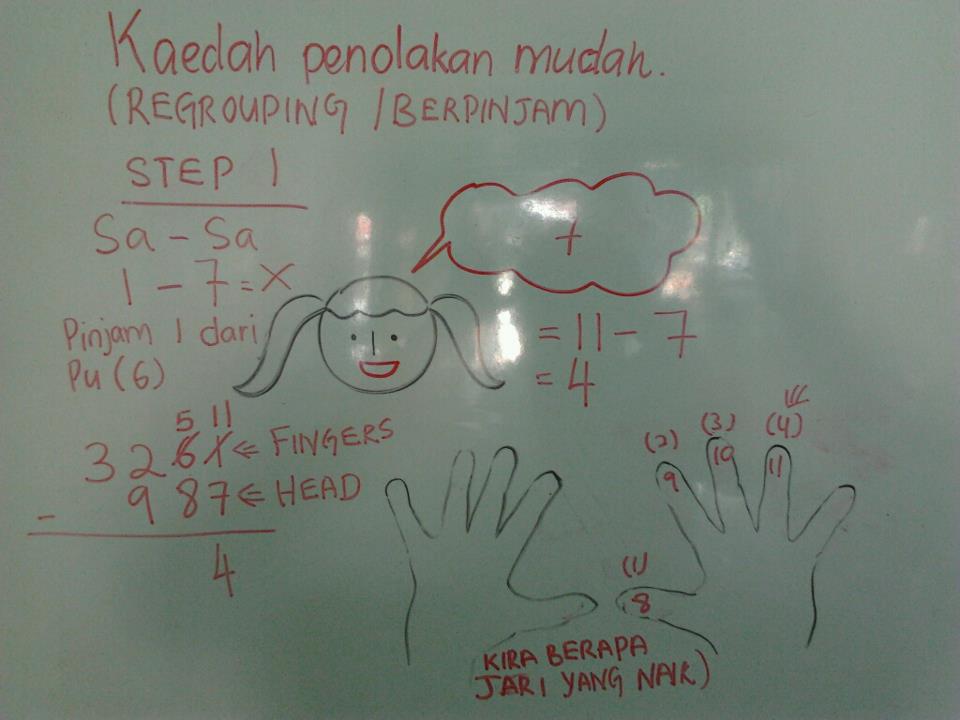 Kaedah penolakan mudah.
(REGROUPING / BERPINJAM)
STEP 1
Sa - Sa
1 - 7 = X
Pinjam 1 dari
Pu (6)
7
= 11 - 7
= 4
5 11
3 2 6 1 ⇐ FINGERS
- 9 8 7 ⇐ HEAD
4
(1) (2) (3) (4)
8 9 10 11
KIRA BERAPA
JARI YANG NAIK)